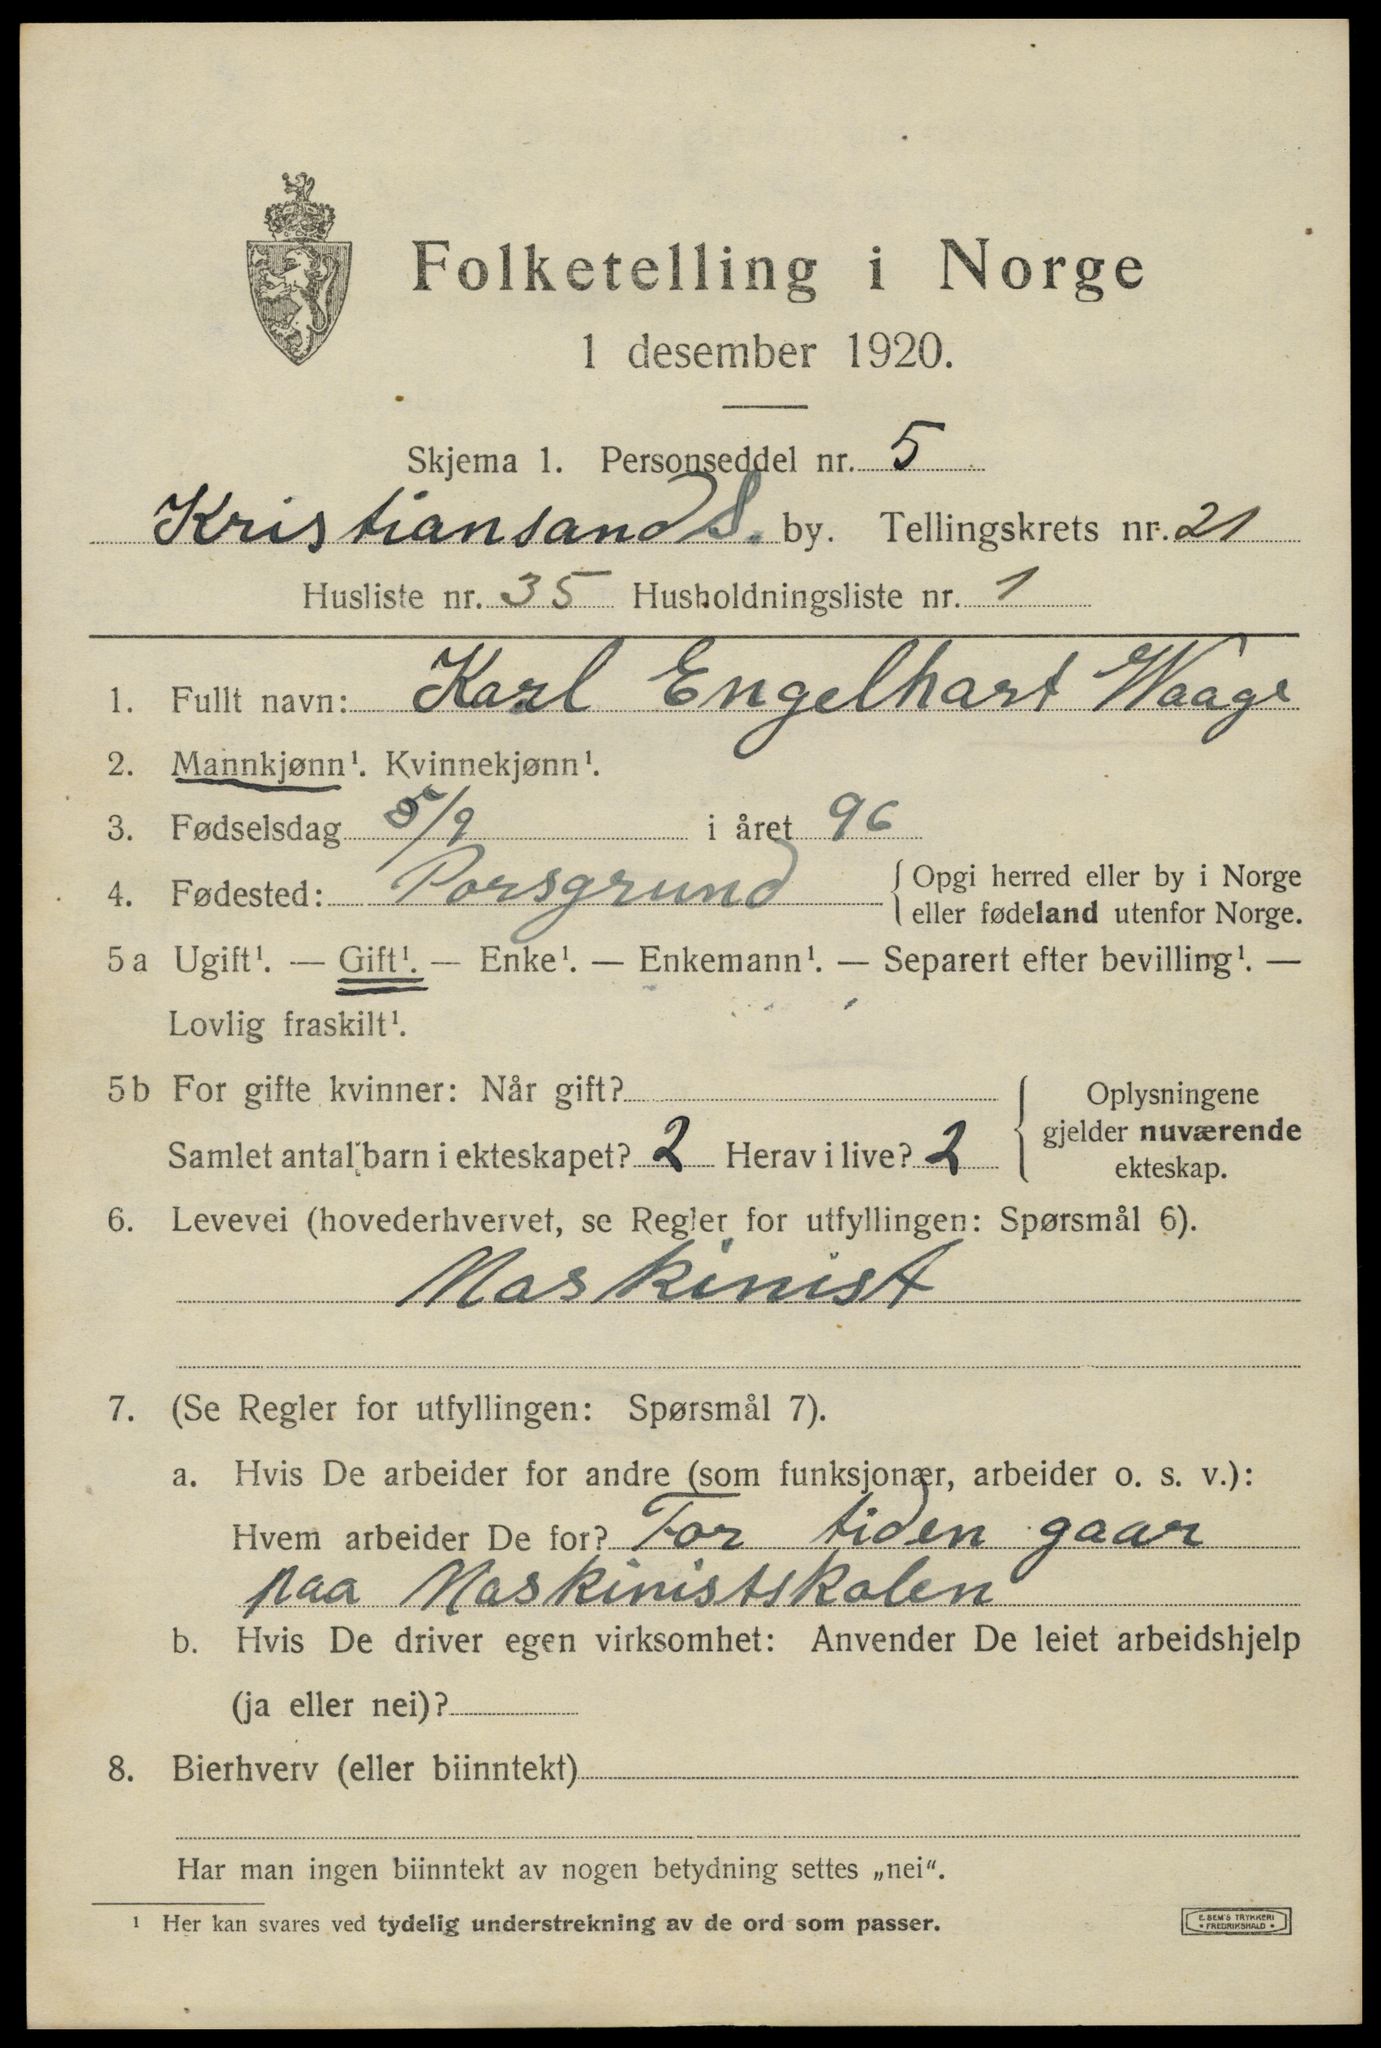 Folketelling i Norge
1 desember 1920.
Skjema 1. Personseddel nr. 5
Kristiansand S. by. Tellingskrets nr. 21
Husliste nr. 35 Husholdningsliste nr. 1
1. Fullt navn: Karl Engelhart Waage
2. Mannkjønn¹. Kvinnekjønn¹.
3. Fødselsdag 5/9 i året 96
4. Fødested: Porsgrund { Opgi herred eller by i Norge
eller fødeland utenfor Norge.
5a Ugift¹. — Gift¹. — Enke¹. — Enkemann¹. — Separert efter bevilling¹. —
Lovlig fraskilt¹.
5b For gifte kvinner: Når gift?
Samlet antal barn i ekteskapet? 2 Herav i live? 2
{ Oplysningene
gjelder nuværende
ekteskap.
6. Levevei (hovederhvervet, se Regler for utfyllingen: Spørsmål 6).
Maskinist
7. (Se Regler for utfyllingen: Spørsmål 7).
a. Hvis De arbeider for andre (som funksjonær, arbeider o. s. v.):
Hvem arbeider De for? For tiden gaar
paa Maskinistskolen
b. Hvis De driver egen virksomhet: Anvender De leiet arbeidshjelp
(ja eller nei)?
8. Bierhverv (eller biinntekt)
Har man ingen biinntekt av nogen betydning settes „nei“.
¹ Her kan svares ved tydelig understrekning av de ord som passer.
E. SEM'S TRYKKERI
* FREDRIKSHALD *